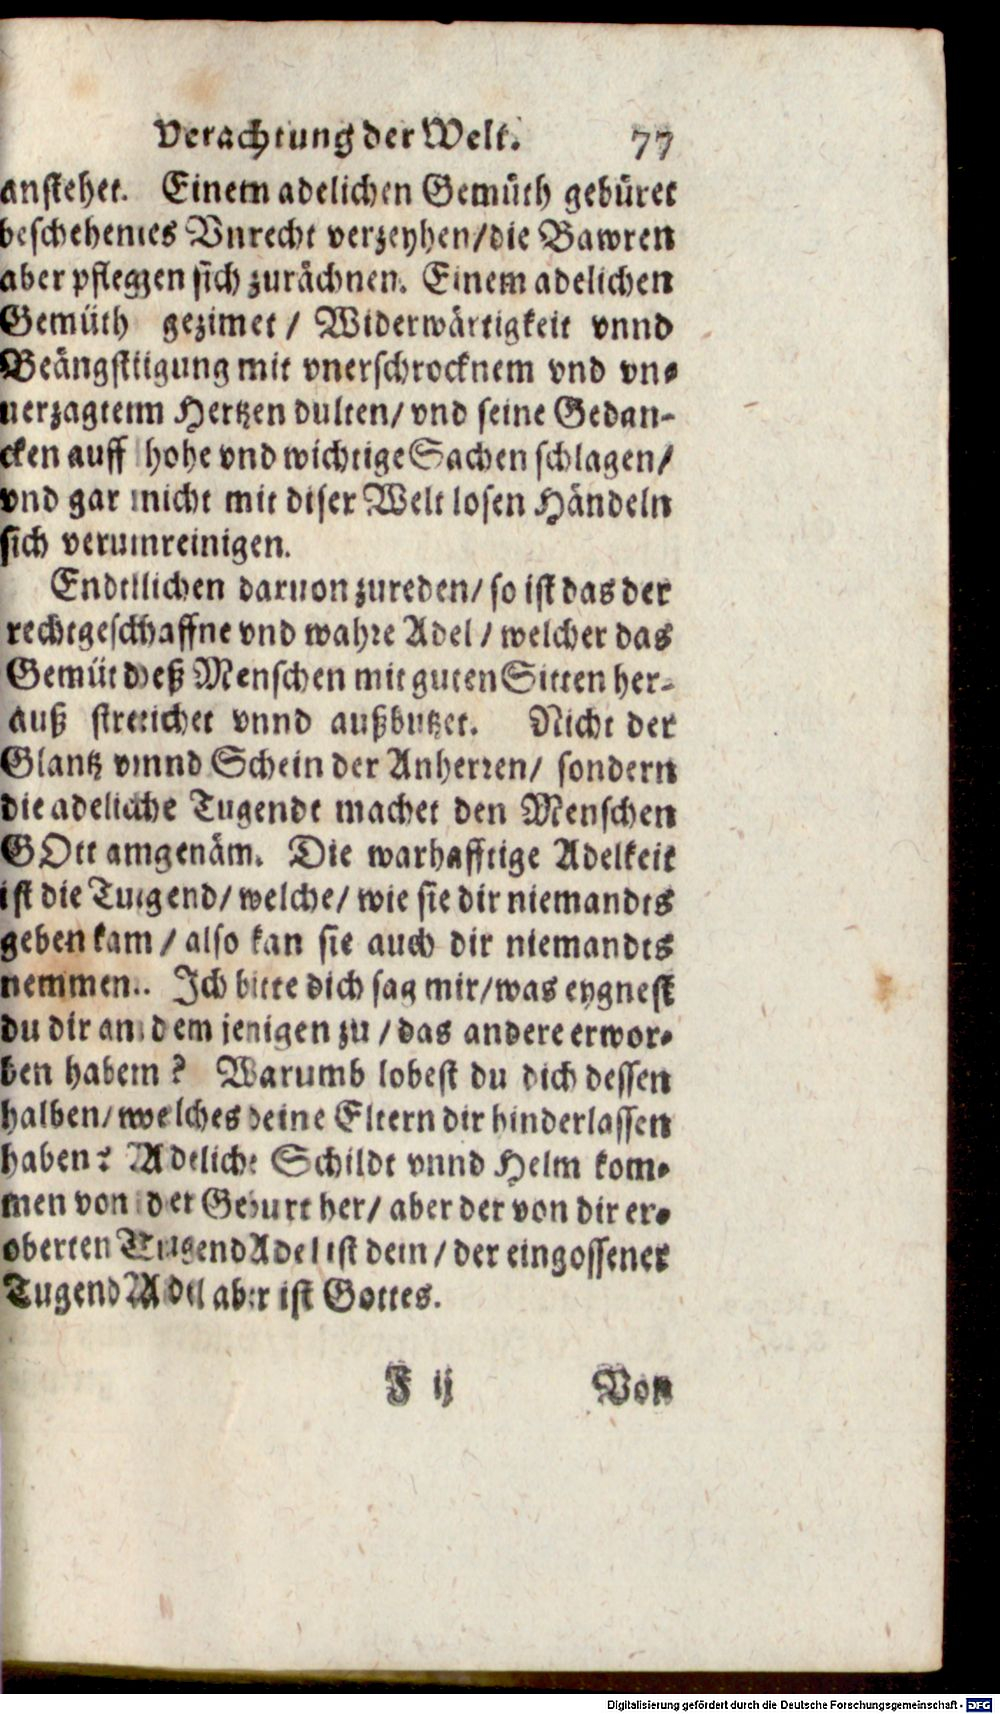 Verachtung der Welt. 77
anstehet. Einem adelichen Gemüth gebüret
beschehenes Vnrecht verzeyhen/die Bawren
aber pflegen sich zurächnen. Einem adelichen
Gemüth gezimet / Widerwärtigkeit vnnd
Beängstigung mit vnerschrocknem vnd vn-
uerzagtem Hertzen dulten/ vnd seine Gedan-
cken auff hohe vnd wichtige Sachen schlagen/
vnd gar nicht mit diser Welt losen Händeln
sich verunreinigen.
Endtlichen daruon zureden/ so ist das der
rechtgeschaffne vnd wahre Adel / welcher das
Gemüt deß Menschen mit guten Sitten her-
auß streichet vnnd außbutzet. Nicht der
Glantz vnnd Schein der Anherren/ sondern
die adeliche Tugendt machet den Menschen
GOtt angenäm. Die warhafftige Adelkeit
ist die Tugend/ welche/ wie sie dir niemandts
geben kan / also kan sie auch dir niemandts
nemmen. Ich bitte dich sag mir/was eygnest
du dir an dem jenigen zu / das andere erwor-
ben haben? Warumb lobest du dich dessen
halben/ welches deine Eltern dir hinderlassen
haben? Adeliche Schildt vnnd Helm kom-
men von der Geburt her/ aber der von dir er-
oberten Tugend Adel ist dein / der eingossener
Tugend Adel aber ist Gottes.
F ij Von
Digitalisierung gefördert durch die Deutsche Forschungsgemeinschaft - DFG